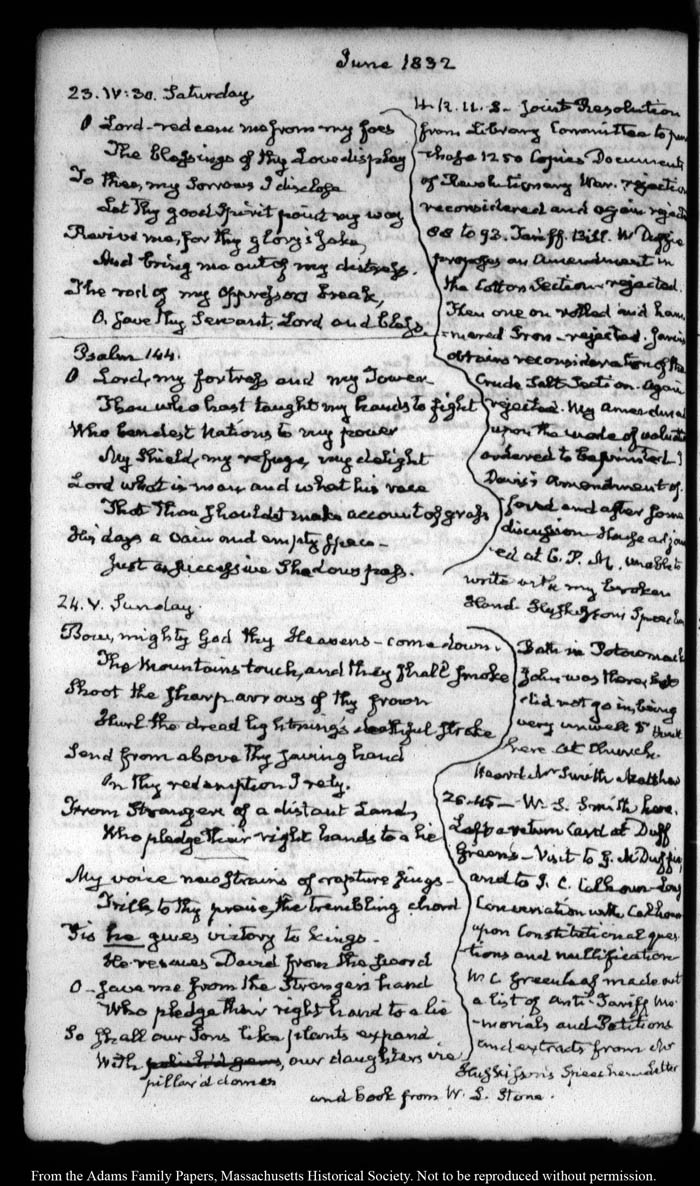 June 1832
23. IV:30. Saturday
O Lord - redeem me from my foes
The blessings of thy Love display
To thee, my Sorrows I disclose
Let thy good Spirit point my way
Revive me, for thy glory's sake,
And bring me out of my distress.
The rod of my oppressors break,
O, save thy Servant, Lord and bless.
Psalm 144.
O Lord, my fortress and my Tower
Thou who hast taught my hands to fight
Who bendest Nations to my power
My Shield, my refuge, my delight
Lord what is man and what his race
That Thou shouldst make account of grass
His days a vain and empty space -
Just as successive Shadows pass.
24. V. Sunday.
Bow, mighty God thy Heavens - come down.
The Mountains touch, and they shall smoke
Shoot the sharp arrows of thy frown
Hurl the dread lightning's stroke
Send from above thy saving hand
On thy redemption I rely.
From Strangers of a distant Land,
Who pledge their right hands to a lie
My voice new Strains of rapture sings -
Trills to thy praise, the trembling chord
Tis he gives victory to Kings -
He rescues David from the sword
O - save me from the Strangers hand
Who pledge their right hand to a lie
So shall our Sons like plants expand
With polish'd gems, our daughters vie
pillar'd domes
H. R. U. S - Joint Resolution
from Library Committee to pur
chase 1250 Copies Documents
of Revolutionary War. rejection
reconsidered and again reject
88 to 93. Tariff Bill. McDuffie
proposes an Amendment in
the Cotton Section - rejected.
Then one on rolled and ham
mered Iron - rejected. Jarvis
obtains reconsideration of the
Crude Salt Section. Again
rejected. My Amendment
upon the mode of valuati
ordered to be printed.
Davis's Amendment
and after some
discussion House adjourn
ed at 6. P. M. unable to
write with my broken
Hand. Huskisson's Speeches
Bath in Potowmack
John was there, but
did not go in, being
very unwell
here at Church.
Heard Mr Smith Matthew
26.45 - W. S. Smith here.
Left a return Card at Duff
Green's - Visit to G. McDuffie,
and to J. C. Calhoun - Long
Conversation with Calhoun
upon Constitutional ques
tions and nullification
W. C. Greenleaf made out
a list of Anti-Tariff Me
morials and Petitions
and extracts from Mr
Huskisson's Speeches Letter
and book from W. L. Stone.
From the Adams Family Papers, Massachusetts Historical Society. Not to be reproduced without permission.